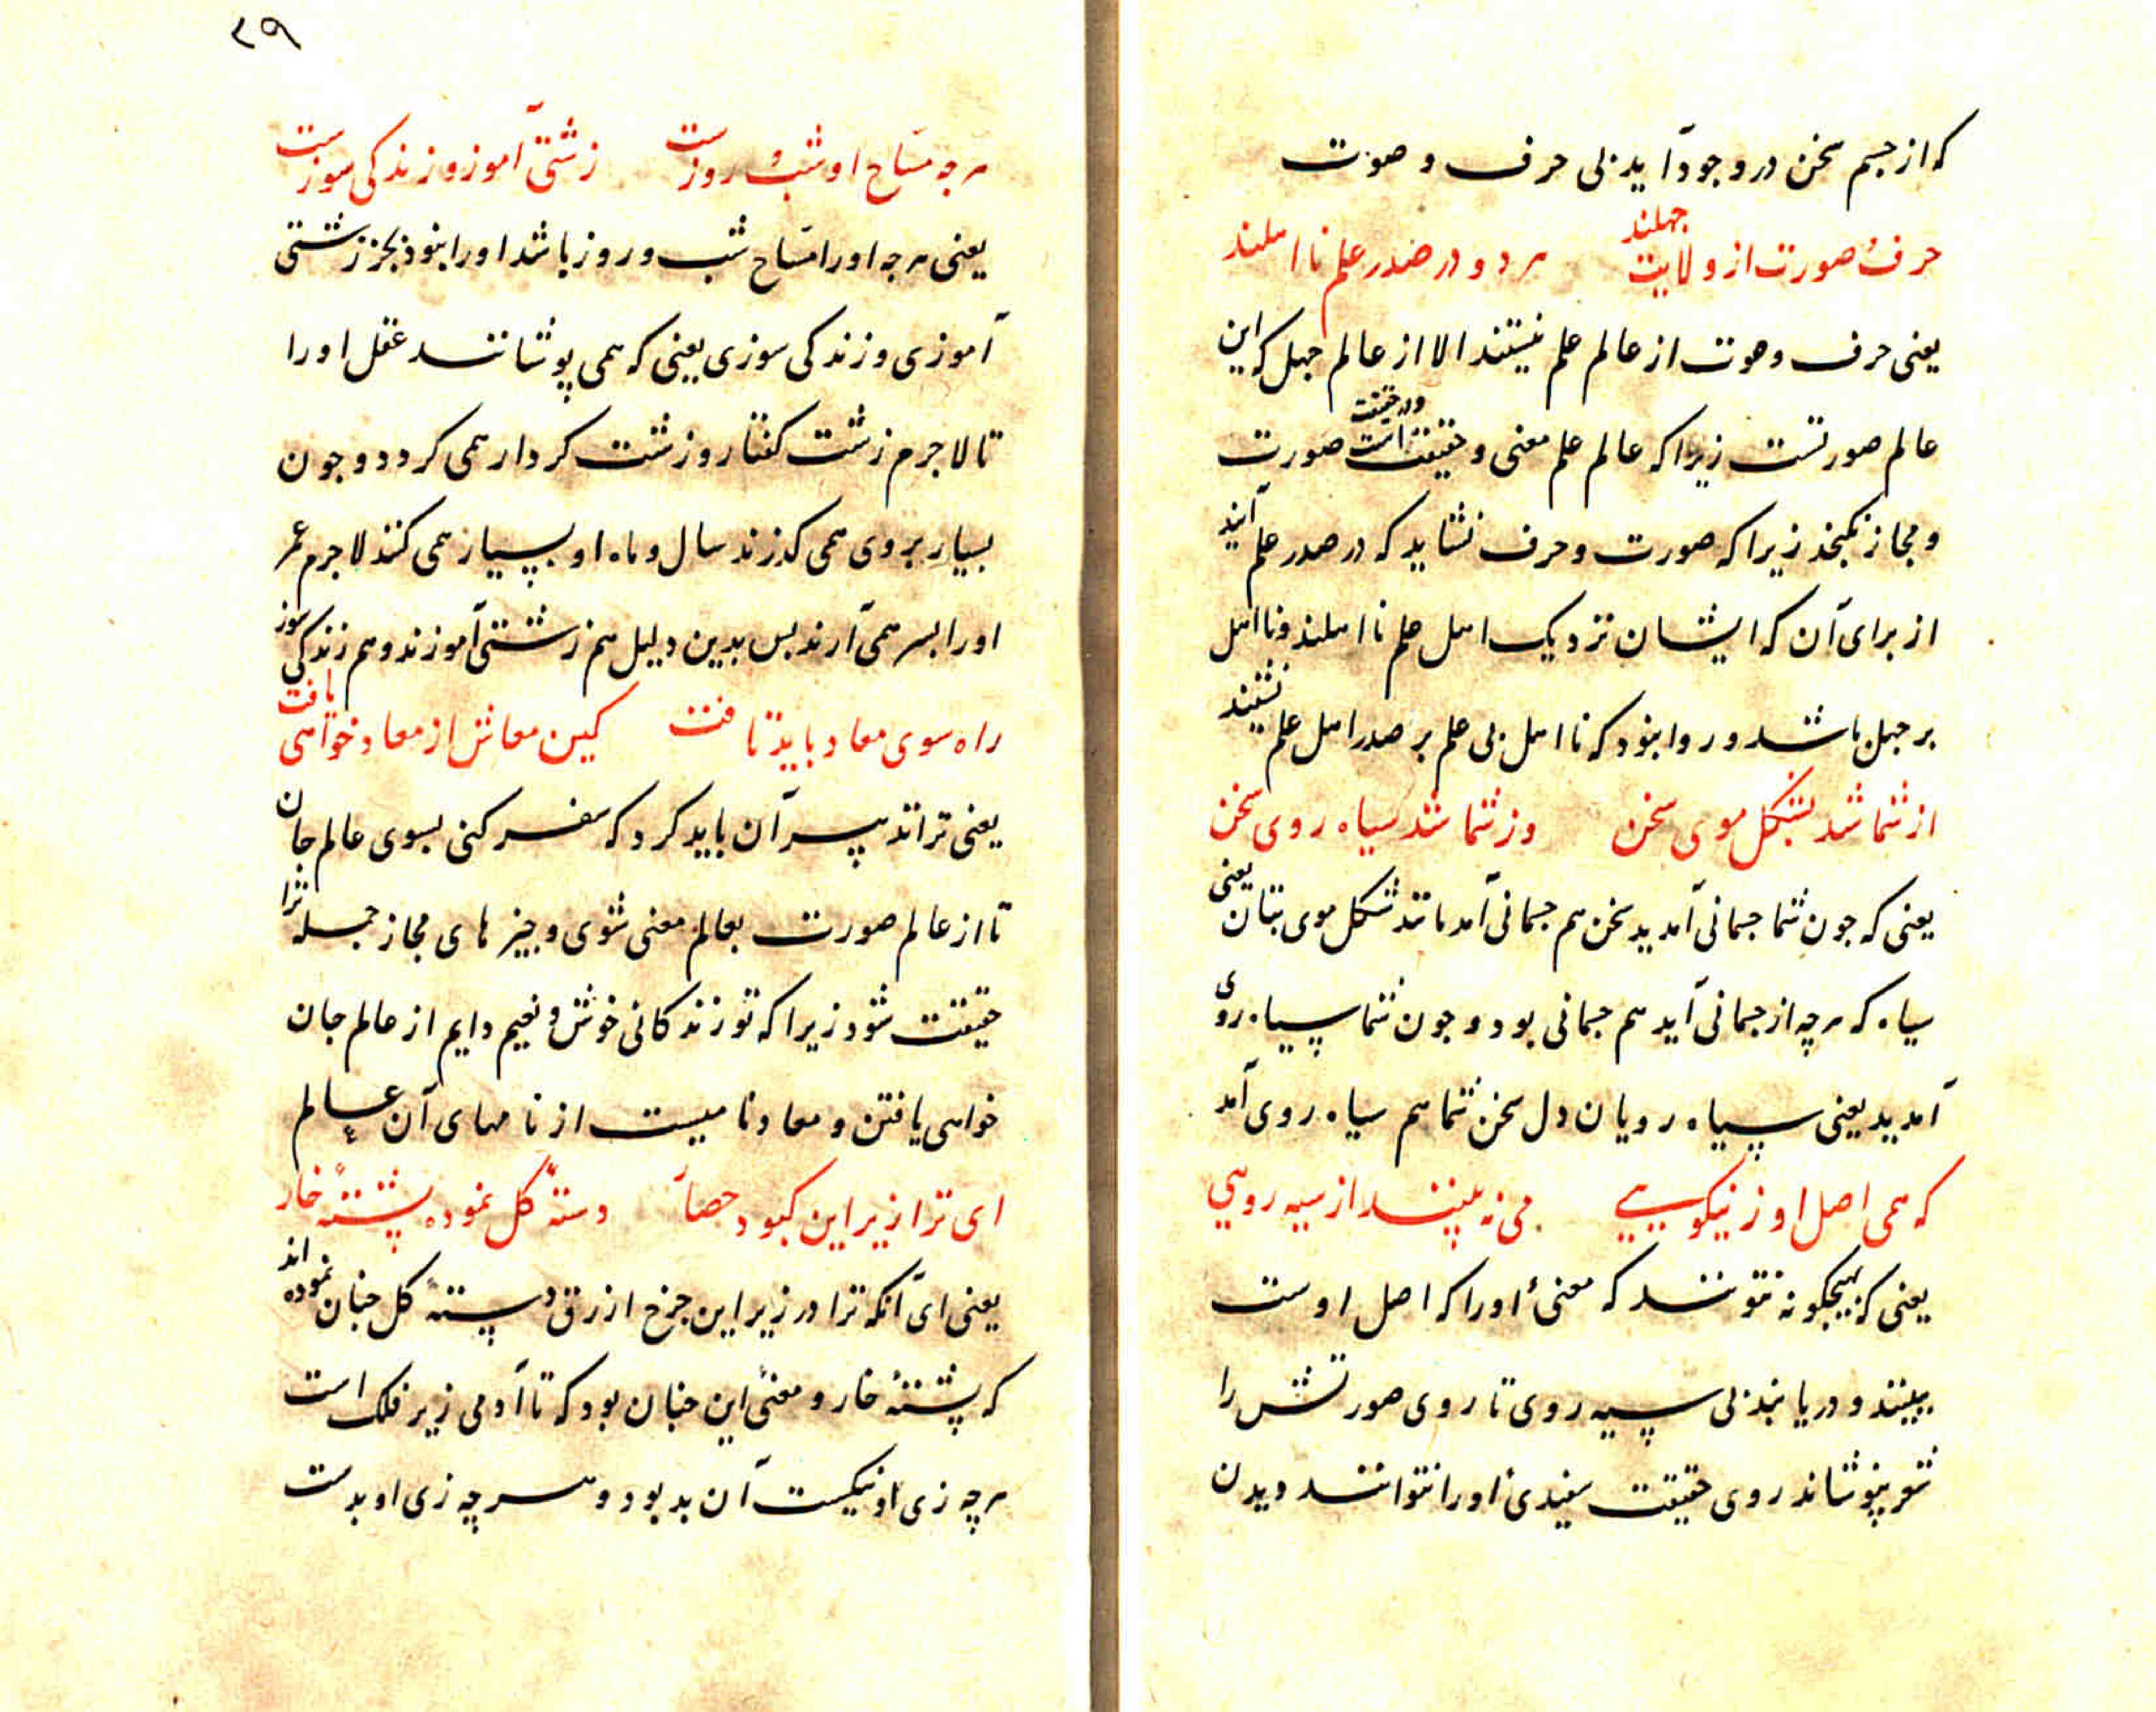 که از جسم سخن در وجود آید بی حرف و صوت
حرف و صورت از ولایت جهلند هر دو در صدر علم نااهلند
یعنی حرف و صوت از عالم علم نیستند الا از عالم جهل که این
عالم صورتست زیرا که عالم علم معنی و حقیقت است و در حقیقت صورت
و مجاز نگنجذ زیرا که صورت و حرف نشاید که در صدر علم آیند
از برای آن که ایشان نزدیک اهل علم نااهلند و نااهل
بر جهل باشد و روا نبود که نااهل بی علم بر صدر اهل علم نشیند
از شما شد بشکل موی سخن وز شما شد سیاه روی سخن
یعنی که جون شما جسمانی آمدید سخن هم جسمانی آمد مانند شکل موی بتان یعنی
سیاه که هرچه از جسمانی آید هم جسمانی بود و جون شما سیاه روی
آمدید یعنی سیاه رویان دل سخن شما هم سیاه روی آمد
که همی اصل او ز نیکویی می نه بینند از سیه رویی
یعنی که بهیچکونه نتوانند که معنئ او را که اصل اوست
ببینند و دریابند بی سیه روی تا روی صورتش را
نپوشاند روی حقیقت سفیدئ او را نتوانند دیدن
۲۹
هرجه مساح او شب و روزست زشتی آموز و زندکی سوزست
یعنی هرجه او را مساح شب و روز باشد او را نبوذ بجز زشتی
آموزی و زندکی سوزی یعنی که همی پوشانند عقل او را
تا لاجرم زشت کفتار و زشت کردار همی کردد و جون
بسیار بر وی همی کذرند سال و ماه او بسیار همی کنند لاجرم عمر
او را بسر همی آرند بس بدین دلیل هم زشتی آموزند و هم زندکی سوز
راه سوی معاد باید تافت کین معاش از معاد خواهی یافت
یعنی ترا تدبیر آن باید کرد که سفر کنی بسوی عالم جان
تا از عالم صورت بعالم معنی شوی و جیزهای مجاز جمله ترا
حقیقت شود زیرا که تو زندکانی خوش و نعیم دایم از عالم جان
خواهی یافتن و معاد نامیست از نامهای آن عالم
ای ترا زیر این کبود حصار دستهٔ کل نموده پشتهٔ خار
یعنی ای آنکه ترا در زیر این جرخ ازرق دستهٔ کل جنان نموده اند
که پشتهٔ خار و معنئ این جنان بود که تا آدمی زیر فلک است
هرچه زی او نیکست آن بد بود و هرچه زی او بدست